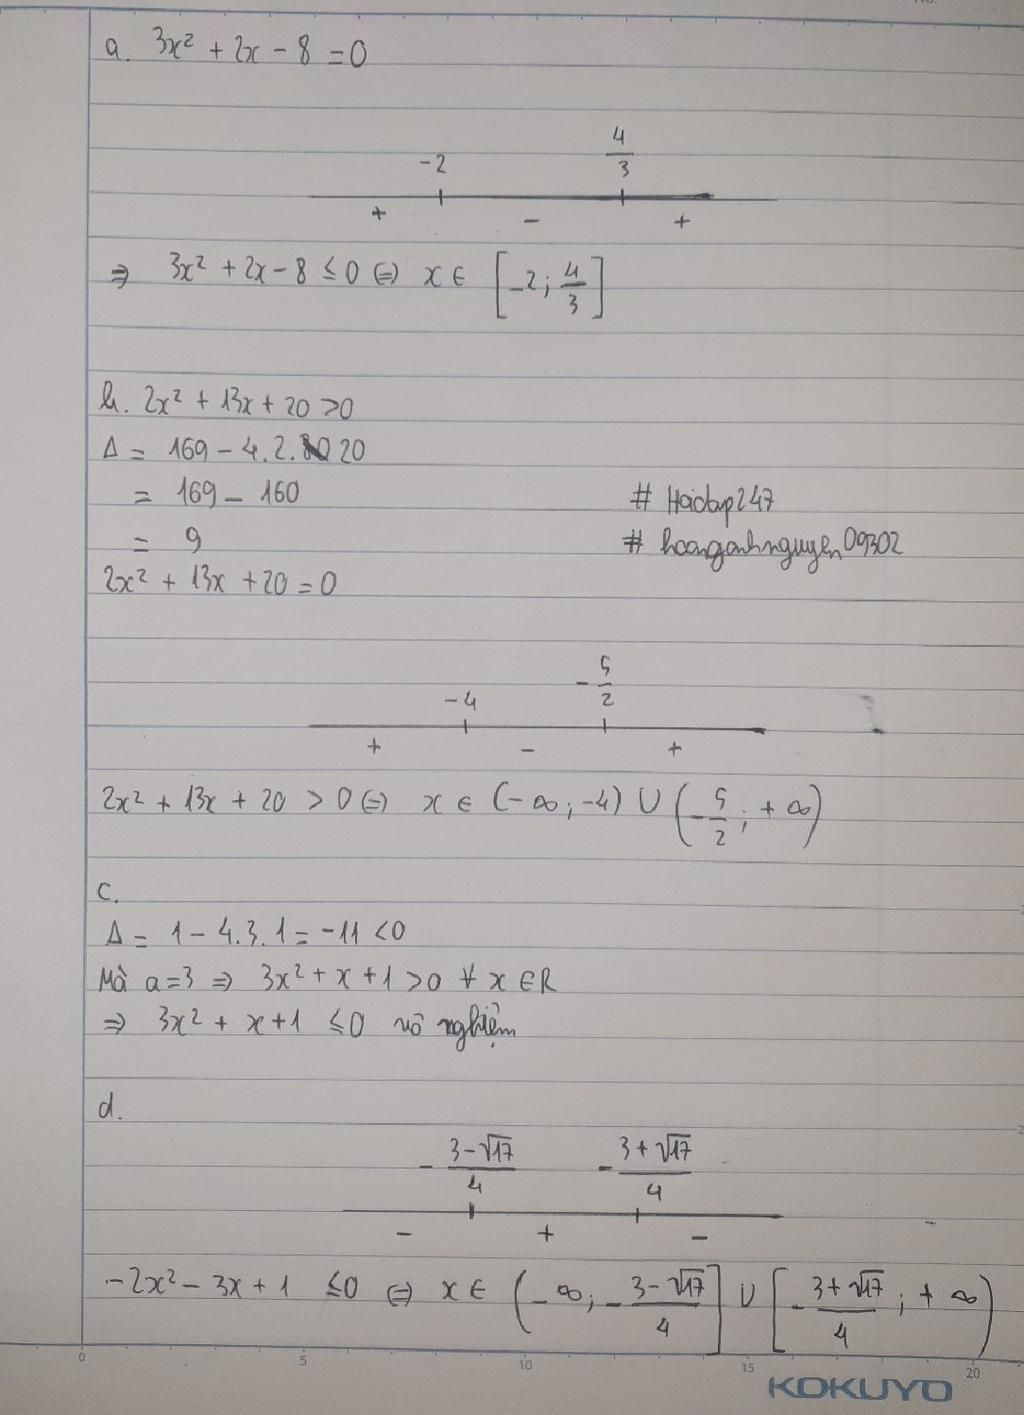 a. 3x² + 2x - 8 = 0
-2 4/3
+ - +
⇒ 3x² + 2x - 8 ≤ 0 ⇔ x ∈ [-2; 4/3]
b. 2x² + 13x + 20 > 0
Δ = 169 - 4.2.20
= 169 - 160
= 9
# Hoidap247
# hoanganhnguyen09302
2x² + 13x + 20 = 0
-4 -5/2
+ - +
2x² + 13x + 20 > 0 ⇔ x ∈ (-∞; -4) ∪ (-5/2; +∞)
c.
Δ = 1 - 4.3.1 = -11 < 0
Mà a = 3 ⇒ 3x² + x + 1 > 0 ∀ x ∈ R
⇒ 3x² + x + 1 ≤ 0 vô nghiệm
d.
-(3-√17)/4 -(3+√17)/4
- + -
-2x² - 3x + 1 ≤ 0 ⇔ x ∈ (-∞; -(3-√17)/4] ∪ [-(3+√17)/4; +∞)
0 5 10 15 20
KOKUYO